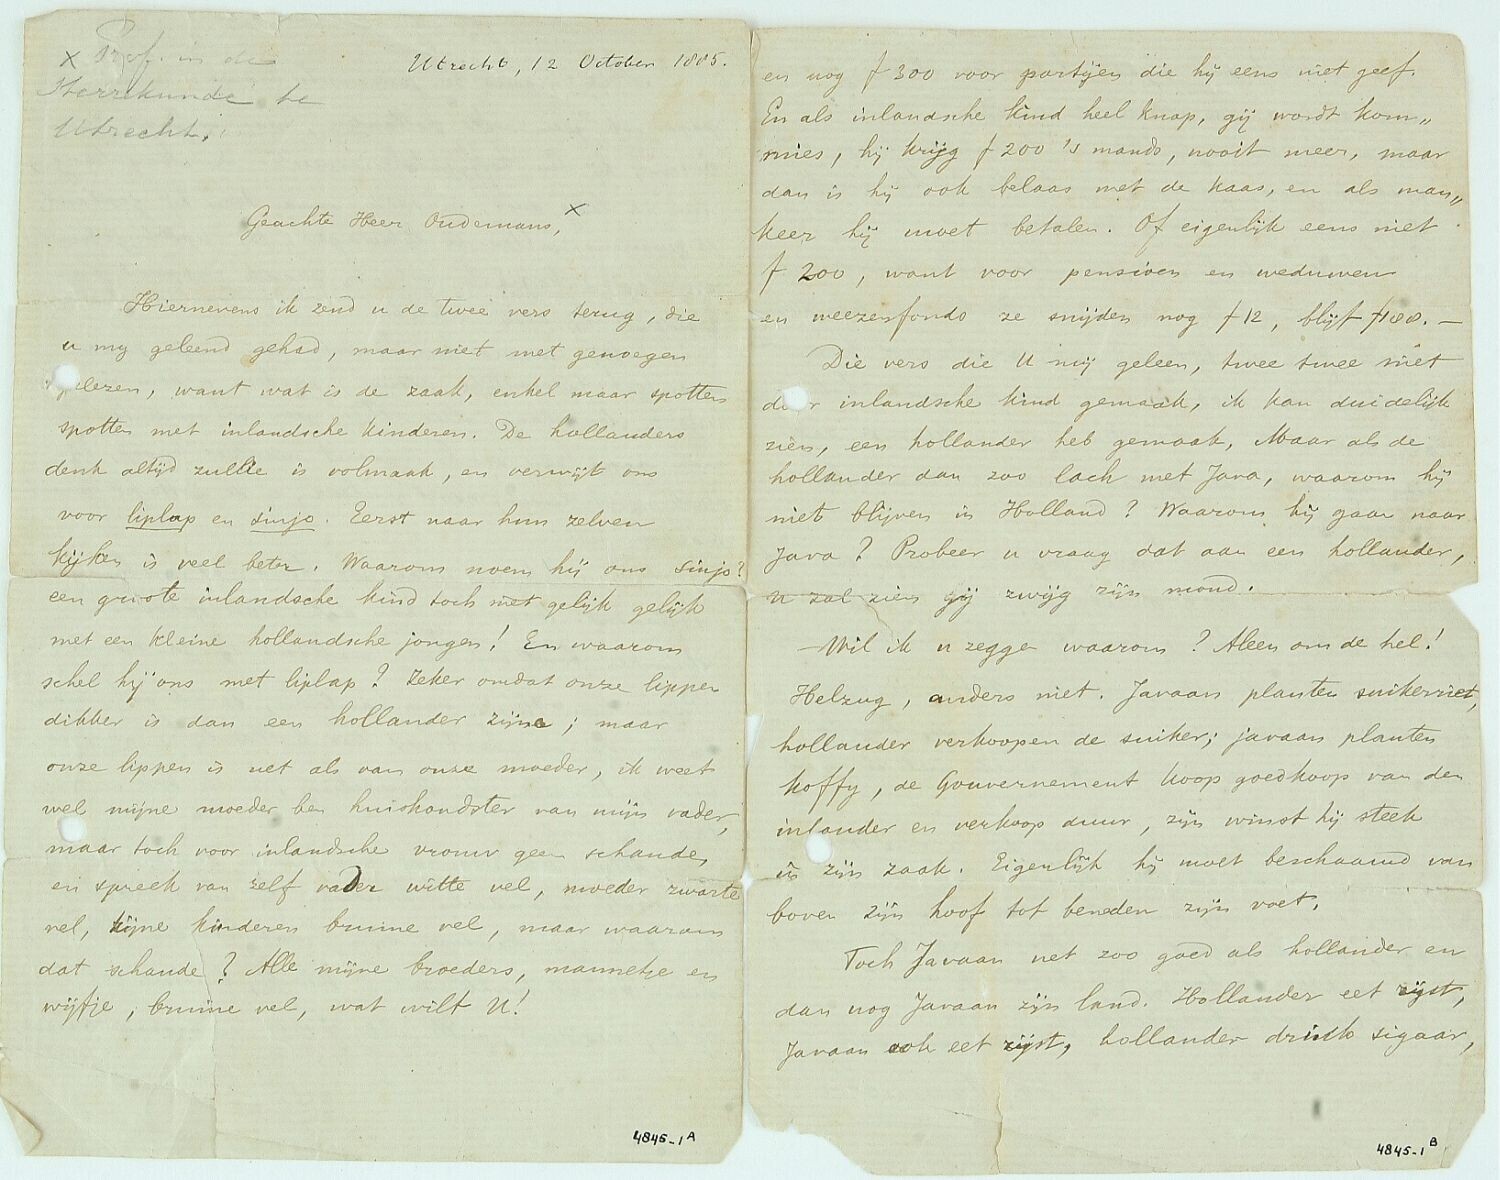 x Prof. in de
Sterrekunde te
Utrecht.
Utrecht, 12 October 1885.
Geachte Heer Oudemans, x
Hiernevens ik zend u de twee vers terug, die
u my geleend gehad, maar niet met genoegen
gelezen, want wat is de zaak, enkel maar spotten
spotten met inlandsche kinderen. De hollanders
denk altijd zullie is volmaak, en verwijt ons
voor liplap en sinjo. Eerst naar hun zelven
kijken is veel beter. Waarom noem hij ons sinjo?
een groote inlandsche kind toch niet gelijk gelijk
met een kleine hollandsche jongen! En waarom
schel hij ons met liplap? Zeker omdat onze lippen
dikker is dan een hollander zijne; maar
onze lippen is net als van onze moeder, ik weet
wel mijne moeder ben huishoudster van mijn vader,
maar toch voor inlandsche vrouw geen schande,
en spreek van zelf vader witte vel, moeder zwarte
vel, zijne kinderen bruine vel, maar waarom
dat schande? Alle mijne broeders, mannetje en
wijfje, bruine vel, wat wilt U!
4845-1 A
en nog f 300 voor partijen die hij eens niet geef.
En als inlandsche kind heel knap, gij wordt kom„
mies, hij krijg f 200 's mands, nooit meer, maar
dan is hij ook belaas met de kaas, en als man„
keer hij moet betalen. Of eigenlijk eens niet
f 200, want voor pensioen en weduwen
en weezenfonds ze snijden nog f 12, blijf f 188.—
Die vers die U mij geleen, twee twee niet
door inlandsche kind gemaak, ik kan duidelijk
zien, een hollander heb gemaak, Maar als de
hollander dan zoo lach met Java, waarom hij
niet blijven in Holland? Waarom hij gaan naar
Java? Probeer u vraag dat aan een hollander,
u zal zien gij zwijg zijn mond.
—Wil ik u zegge waarom? Aleen om de hel!
Helzug, anders niet. Javaan planten suikerriet,
hollander verkoopen de suiker; javaan planten
koffy, de Gouvernement koop goedkoop van den
inlander en verkoop duur, zijn winst hij steek
in zijn zaak. Eigenlijk hij moet beschaamd van
boven zijn hoof tot beneden zijn voet.
Toch Javaan net zoo goed als hollander en
dan nog Javaan zijn land. Hollander eet rijst,
Javaan ook eet rijst, hollander drink sigaar,
4845-1 B